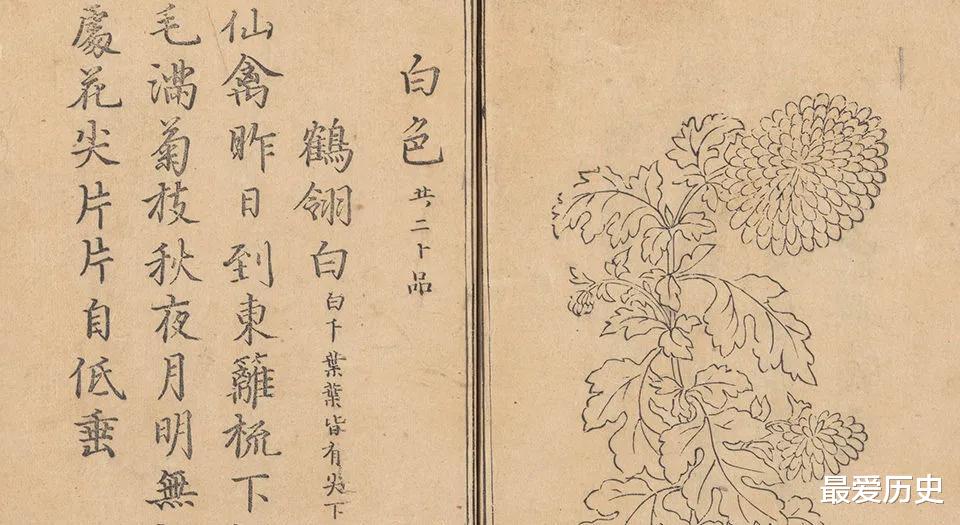 白色 共二十品
鶴翎白 白千葉葉皆有尖下
仙禽昨日到東籬梳下
毛滿菊枝秋夜月明無
處花尖片片自低垂
最爱历史